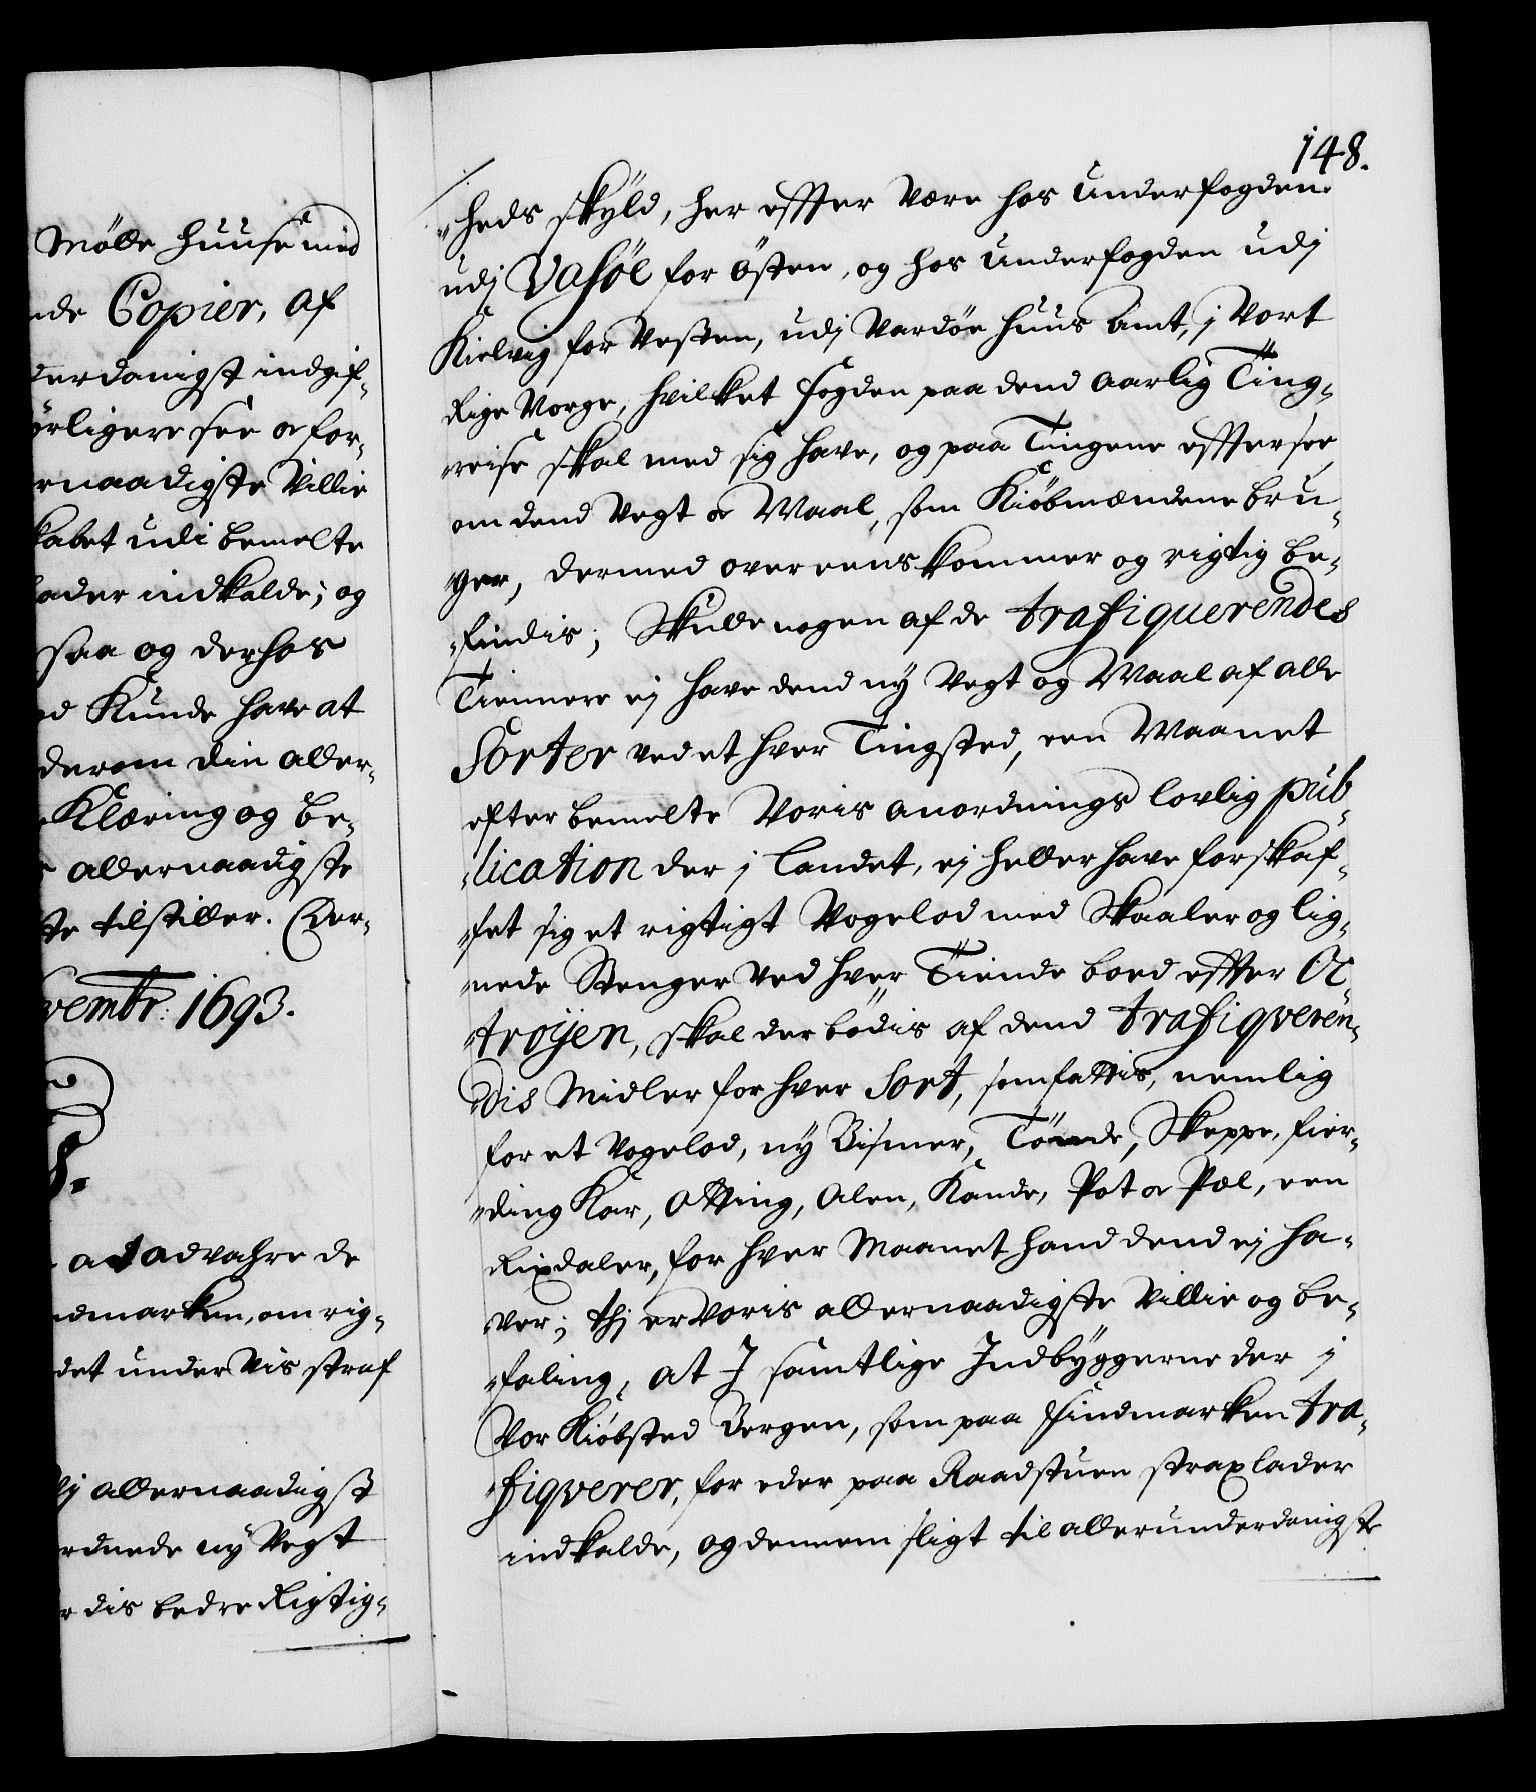 Mölle Huuse med
nde Copier, af
derdanigst indgif-
yrligere see oc for-
ernaadigste Villie
kabet udi bemelte
lader indkalde; og
saa og derhos
d Kunde have at
derom din aller-
Klæring og be-
allernaadigste
te tilstiller. Der-
vembr: 1693.
ad advahre de
ndmarken, om rig-
det under Vis straf
j allernaadigst
rdnede ny Vegt
r dis bedre Rigtig-
148.
-heds skyld, her effter være hos Underfogden
udj Vasöe for Östen, og hos Underfogden udj
Kielvig for Vesten, udj Vardöe Huus Amt, j Vort
Rige Norge, hvilket fogden paa dend Aarlig Ting-
-reise skal med sig have, og paa Tingene efftersee
om dend Vegt oc Maal, som Kiöbmændene bru-
-ger, dermed overeens kommer og rigtig be-
-findis; Skulle nogen af de trafiquerendes
Tiennere ej have dend ny Vegt og Maal af alle
Sorter ved et hver Tingsted, een Maanet
efter bemelte Voris anordnings lovlig pub-
-lication der j Landet, ej heller have forskaf-
-fet sig et rigtigt Vogelod med Skaaler og lig-
-nede Stenger Ved hver Tiende boed effter Oc-
-troyen, skal der bödis af dend trafiqveren-
-dis Midler for hver Sort, som fattis, nemlig
for et Vogelod, ny Bismer, Tönde, Skeppe, fier-
-ding Kar, Otting, Alen, Kande, Pot oc Pæl, een
Rixdaler, for hver Maanet hand dend ej ha-
-ver; thj er Voris allernaadigste Villie og be-
-faling, at I samtlige Indbyggerne der j
Vor Kiöbsted Bergen, som paa Findmarken tra-
-fiqverer, for eder paa Raadstuen strax lader
indkalde, og dennem sligt til allerunderdanigste